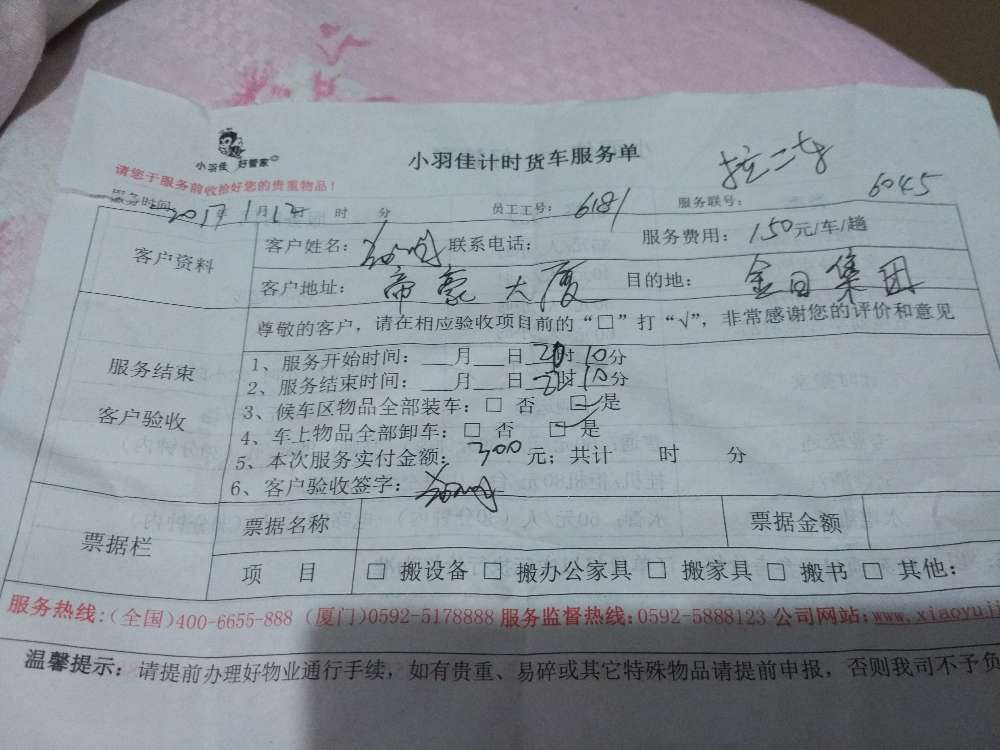 小羽佳 好管家
小羽佳计时货车服务单
拉二车
请您于服务前收拾好您的贵重物品！
服务时间 2017年1月12日 时 分 员工工号：6181 服务联号：6045
客户资料
客户姓名： 联系电话： 服务费用：150元/车/趟
客户地址：帝豪大厦 目的地：金日集团
尊敬的客户，请在相应验收项目前的“□”打“√”，非常感谢您的评价和意见
服务结束
客户验收
1、服务开始时间：___月___日 时10分
2、服务结束时间：___月___日 时10分
3、候车区物品全部装车：□ 否 ☑是
4、车上物品全部卸车：□ 否 ☑是
5、本次服务实付金额：300元；共计 时 分
6、客户验收签字：
票据栏
票据名称 票据金额
项 目 □ 搬设备 □ 搬办公家具 □ 搬家具 □ 搬书 □ 其他：
服务热线：(全国)400-6655-888 (厦门)0592-5178888 服务监督热线：0592-5888123 公司网站：www.xiaoyuji
温馨提示：请提前办理好物业通行手续，如有贵重、易碎或其它特殊物品请提前申报，否则我司不予负